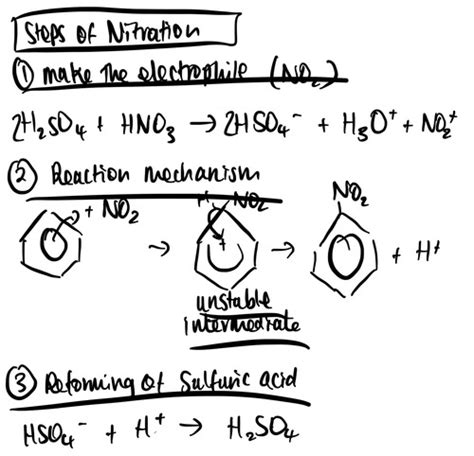 Steps of Nitration
① make the electrophile (NO₂)
2H₂SO₄ + HNO₃ → 2HSO₄⁻ + H₃O⁺ + NO₂⁺
② Reaction mechanism
+ NO₂ → H NO₂ + → NO₂ + H⁺
unstable
intermediate
③ Reforming of Sulfuric acid
HSO₄⁻ + H⁺ → H₂SO₄